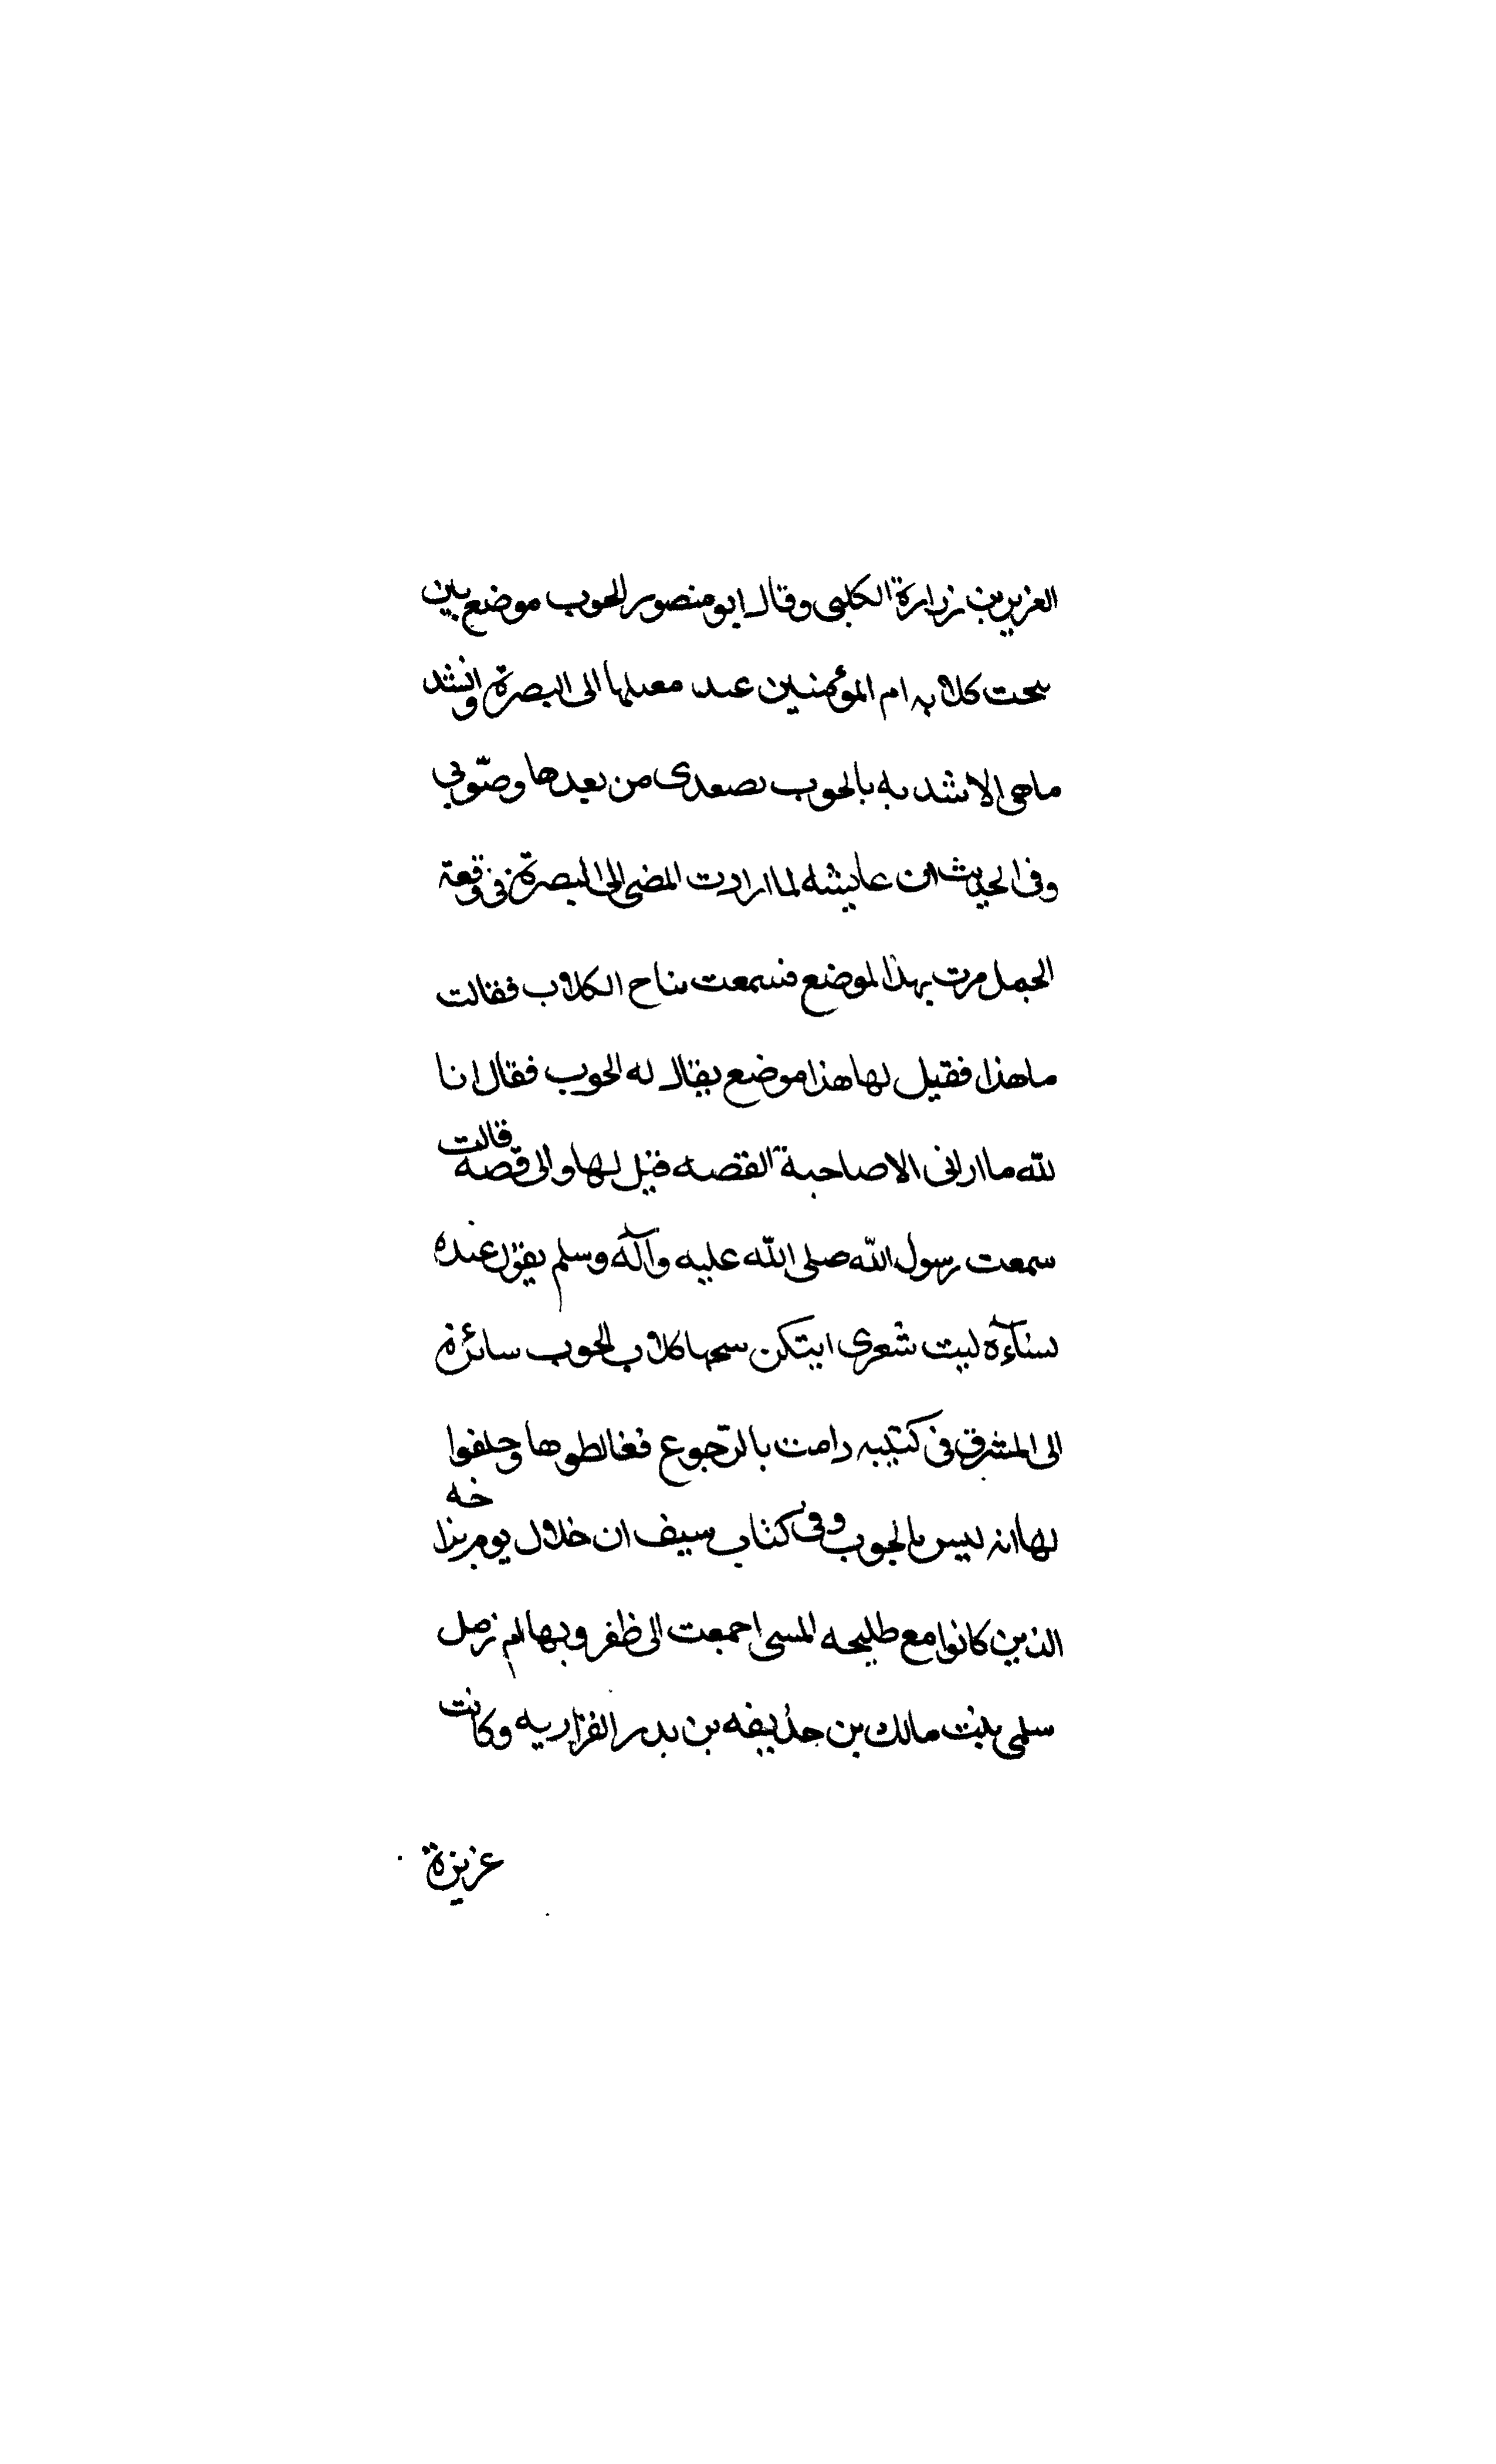 العزيز بن زرارة الكلبي وقال ابو منصور الحوب موضع بين
سحت كلابه ام المؤمنين عند مقبلها الى البصرة وانشد
ماهي الا شد به بالحوب تصعدى من بعدها وصّوبي
وفي الحديث ان عايشه لما ارادت المضى الى البصرة في وقعة
الجمل مرت بهذا الموضع فسمعت نباح الكلاب فقالت
ماهذا فقيل لها هذا موضع يقال له الحوب فقال انا
لله ما اراني الا صاحبة القصه قيل لها واى قصه قالت
سمعت رسول الله صلى الله عليه وآله وسلم يقول عنده
نساءه ليت شعرى ايتكن سحها كلاب الحوب سائرة
الى المشرق في كتيبه رامت بالرّجوع فغالطوها وحلفوا
لها انه ليس بالحوب وفي كتاب سيف ان خلال يوم بزا خه
الذين كانوا مع طليحه المسى اجمعت الى ظفر وبها ام زمل
سلمى بنت مالك بن حذيفه بن بدر الفزاريه وكانت
عزيزة